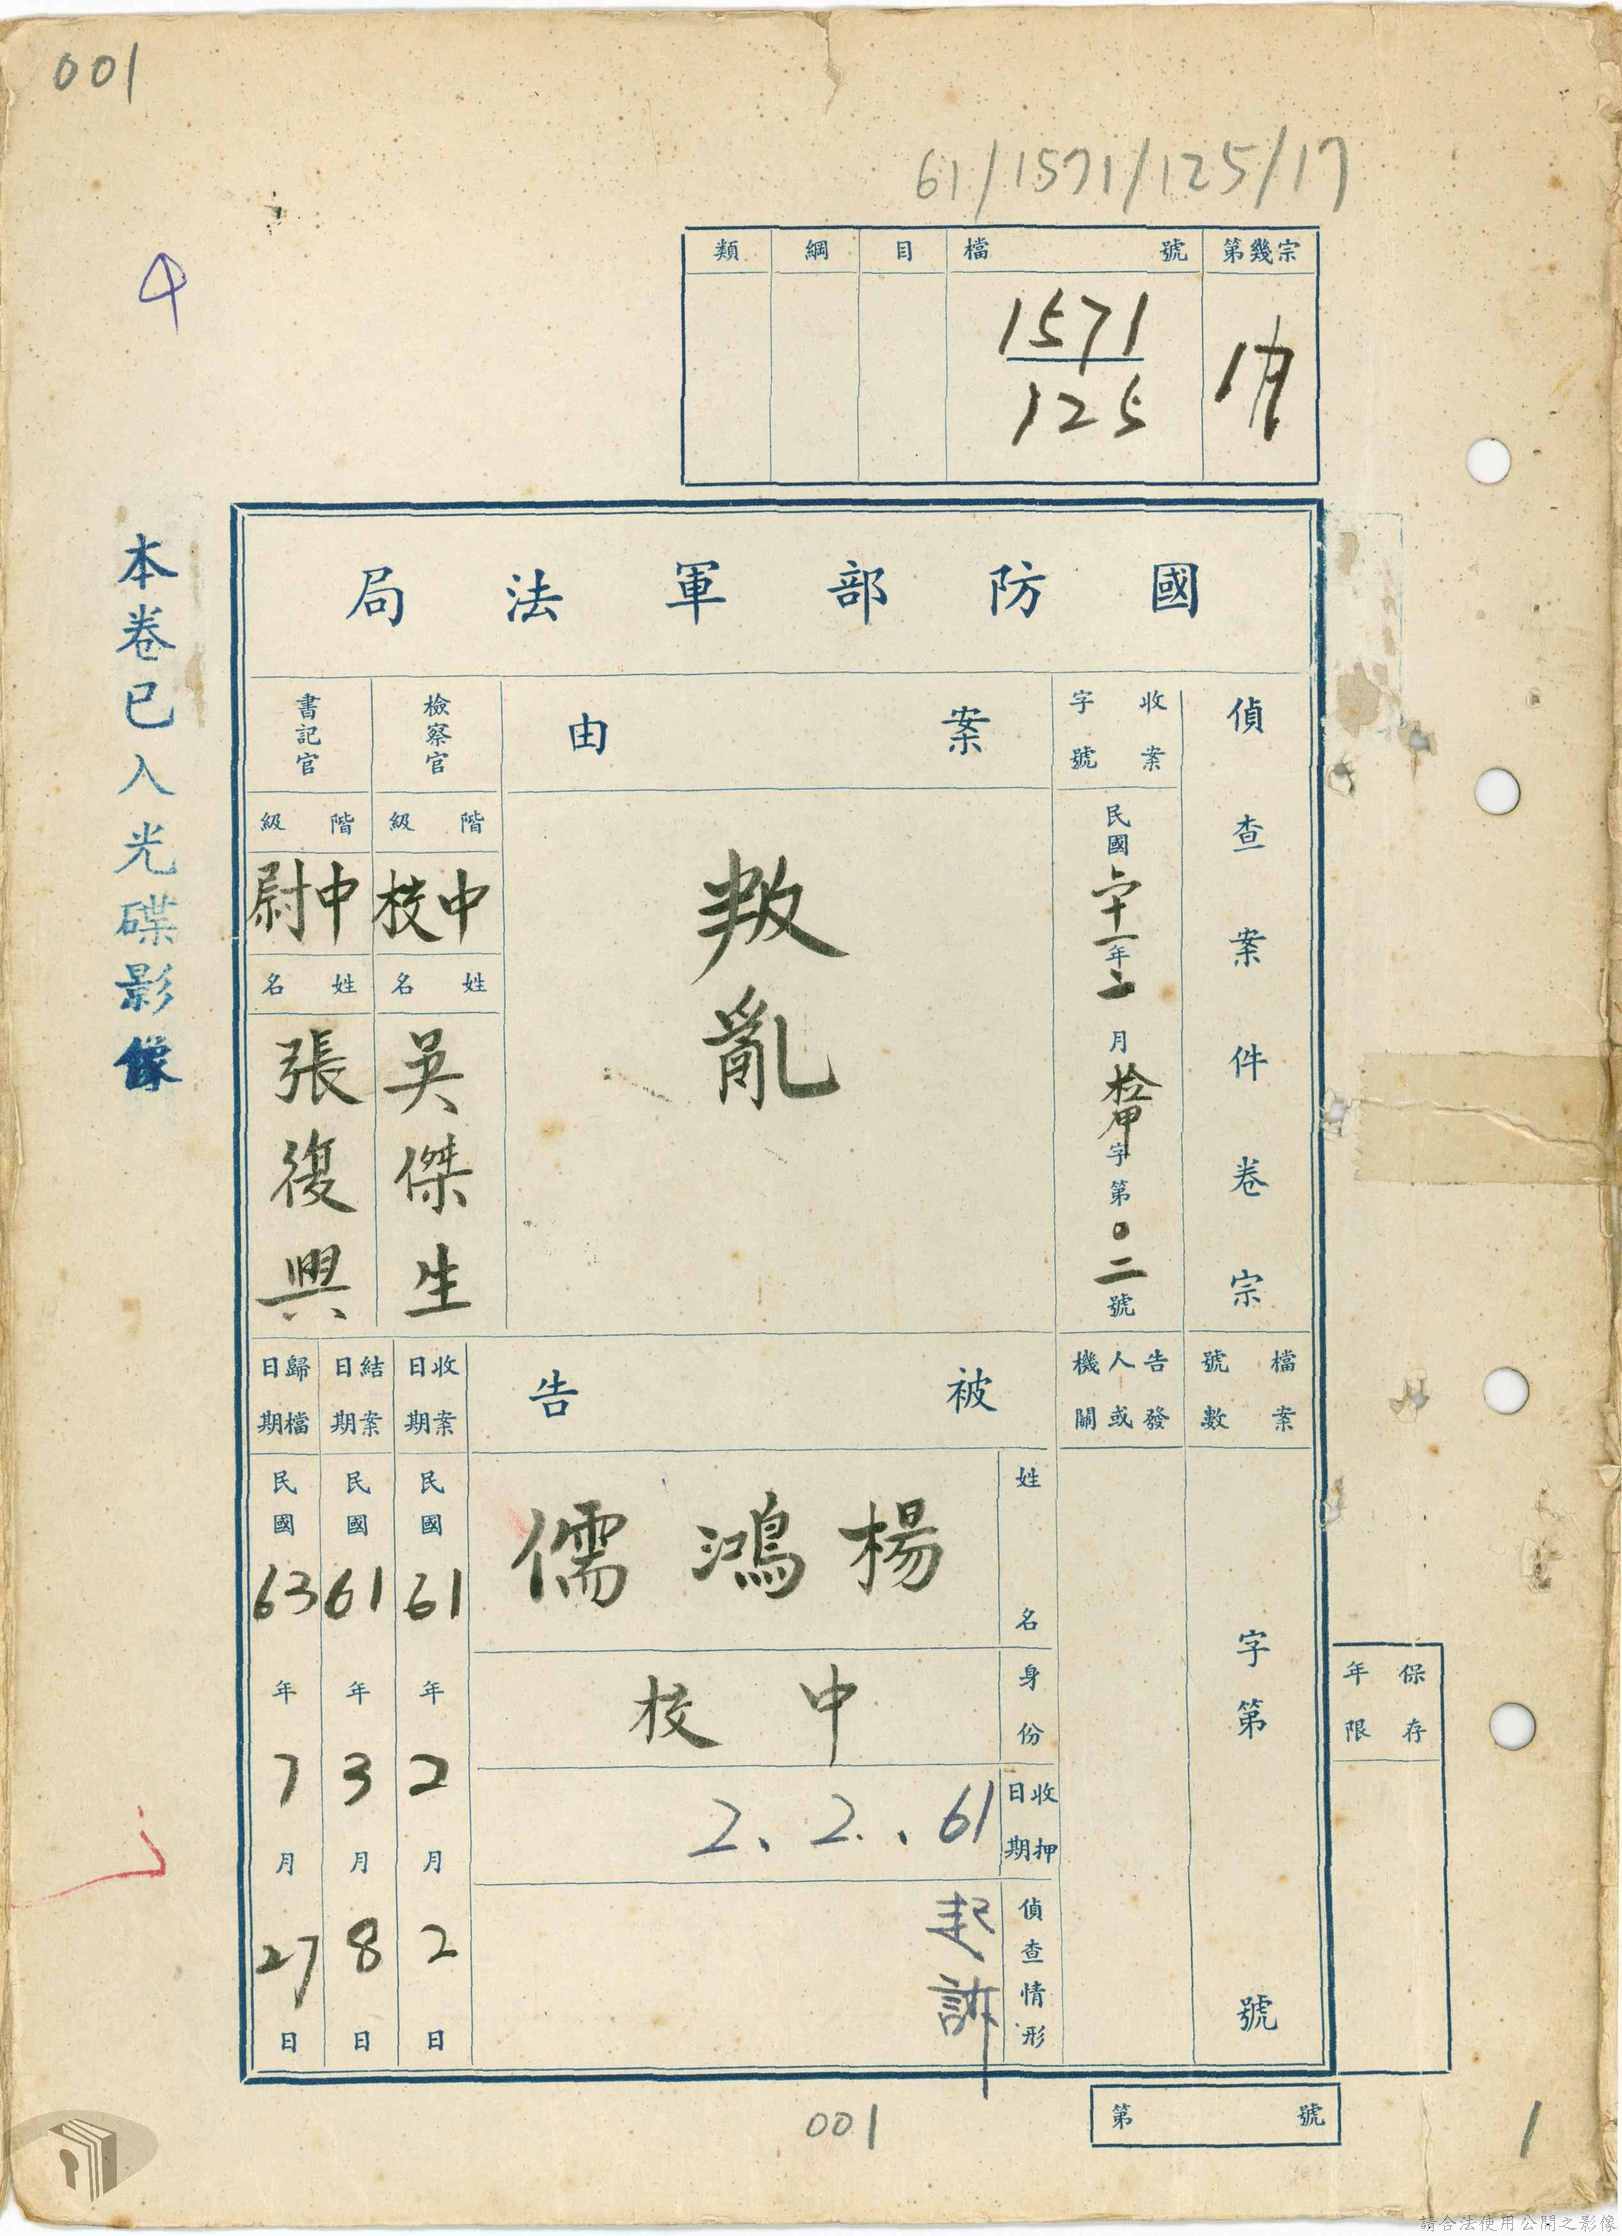 001
61/1571/125/17
類 綱 目 檔號 第幾宗
1571
125
17
本卷已入光碟影像
國防部軍法局
偵查案件卷宗
收案字號
民國六十一年二月
字第〇二號
案由
叛亂
檢察官
階級
中校
姓名
吳傑生
書記官
階級
中尉
姓名
張復興
檔案號數
字第 號
告發人或機關
被告
姓名
楊鴻儒
身份
中校
收押日期
61、2、2
偵查情形
起訴
收案日期
民國61年2月2日
結案日期
民國61年3月8日
歸檔日期
民國63年7月27日
保存年限
第 號
001
1
請合法使用公開之影像